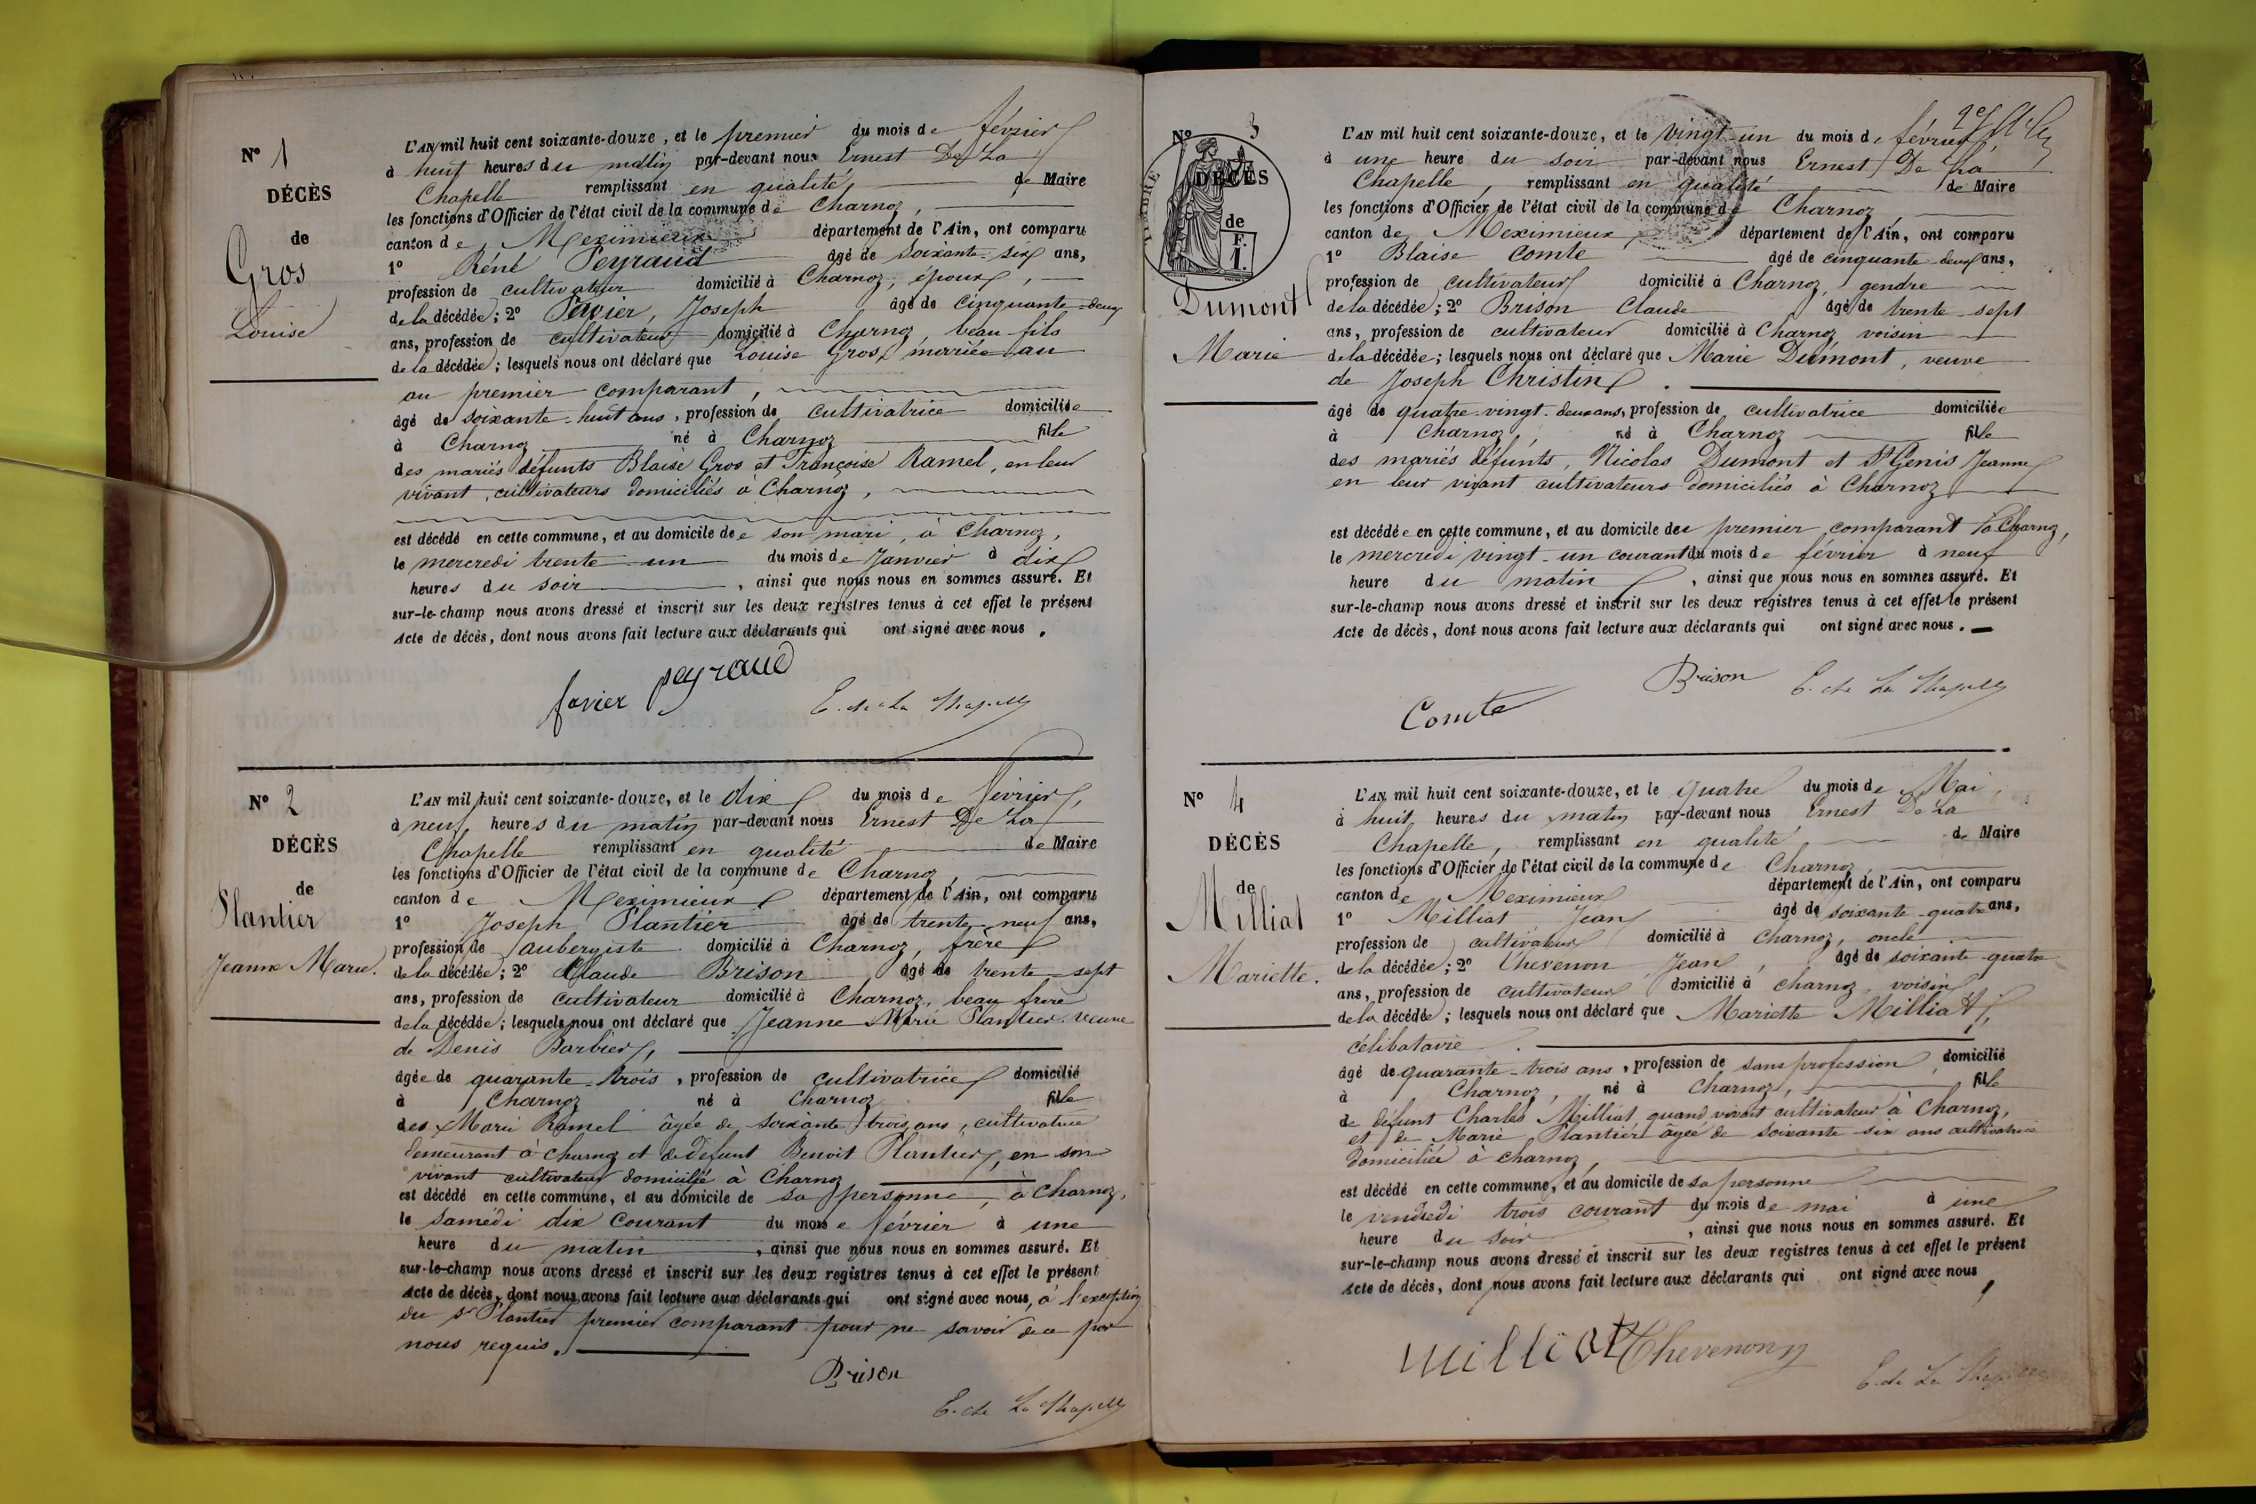 N° 1
DÉCÈS
de
Gros
Louise
L'AN mil huit cent soixante-douze, et le premier du mois de février
à huit heures du matin par-devant nous Ernest De La
Chapelle remplissant en qualité de Maire
les fonctions d'Officier de l'état civil de la commune de Charnoz,
canton de Meximieux département de l'Ain, ont comparu
1° Réné Peyraud âgé de soixante-six ans,
profession de cultivateur domicilié à Charnoz, époux,
de la décédée; 2° Favier, Joseph âgé de cinquante-deux
ans, profession de cultivateur domicilié à Charnoz, beau-fils
de la décédée; lesquels nous ont déclaré que Louise Gros, mariée au
au premier comparant,
âgé de soixante-huit ans, profession de cultivatrice domiciliée
à Charnoz né à Charnoz fille
des mariés défunts Blaise Gros et Françoise Ramel, en leur
vivant, cultivateurs domiciliés à Charnoz,
est décédé en cette commune, et au domicile de son mari, à Charnoz,
le mercredi trente-un du mois de Janvier à dix
heures du soir, ainsi que nous nous en sommes assuré. Et
sur-le-champ nous avons dressé et inscrit sur les deux registres tenus à cet effet le présent
Acte de décès, dont nous avons fait lecture aux déclarants qui ont signé avec nous.
favier peyraud E. de La Chapelle
N° 2
DÉCÈS
de
Plantier
Jeanne Marie.
L'AN mil huit cent soixante-douze, et le dix du mois de février,
à neuf heures du matin par-devant nous Ernest De La
Chapelle remplissant en qualité de Maire
les fonctions d'Officier de l'état civil de la commune de Charnoz,
canton de Meximieux département de l'Ain, ont comparu
1° Joseph Plantier âgé de trente-neuf ans,
profession de aubergiste domicilié à Charnoz, frère
de la décédée; 2° Claude Brison âgé de trente-sept
ans, profession de cultivateur domicilié à Charnoz, beau frère
de la décédée; lesquels nous ont déclaré que Jeanne Marie Plantier veuve
de Denis Barbier,
âgée de quarante-trois, profession de cultivatrice domicilié
à Charnoz né à Charnoz fille
des Marie Ramel âgée de soixante trois ans, cultivatrice
demeurant à Charnoz et de défunt Benoit Plantier, en son
vivant cultivateur domicilié à Charnoz
est décédé en cette commune, et au domicile de sa personne, à Charnoz,
le samedi dix courant du mois de février à une
heure du matin, ainsi que nous nous en sommes assuré. Et
sur-le-champ nous avons dressé et inscrit sur les deux registres tenus à cet effet le présent
Acte de décès, dont nous avons fait lecture aux déclarants qui ont signé avec nous, à l'exception
du Sr Plantier premier comparant pour ne savoir de ce par
nous requis.
Brison
E. de La Chapelle
N° 3
DÉCÈS
de
Dumont
Marie
L'AN mil huit cent soixante-douze, et le vingt-un du mois de février
à une heure du soir par-devant nous Ernest De La
Chapelle, remplissant en qualité de Maire
les fonctions d'Officier de l'état civil de la commune de Charnoz,
canton de Meximieux, département de l'Ain, ont comparu
1° Blaise Comte âgé de cinquante-deux ans,
profession de cultivateur domicilié à Charnoz, gendre
de la décédée; 2° Brison Claude âgé de trente-sept
ans, profession de cultivateur domicilié à Charnoz voisin
de la décédée; lesquels nous ont déclaré que Marie Dumont, veuve
de Joseph Christin.
âgé de quatre-vingt-deux ans, profession de cultivatrice domiciliée
à Charnoz, né à Charnoz fille
des mariés défunts, Nicolas Dumont et St Genis Jeanne
en leur vivant cultivateurs domiciliés à Charnoz
est décédée en cette commune, et au domicile deu premier comparant à Charnoz,
le mercredi vingt-un courant du mois de février à neuf
heure du matin, ainsi que nous nous en sommes assuré. Et
sur-le-champ nous avons dressé et inscrit sur les deux registres tenus à cet effet le présent
Acte de décès, dont nous avons fait lecture aux déclarants qui ont signé avec nous.
Comte Brison E. de La Chapelle
N° 4
DÉCÈS
de
Milliat
Mariette.
L'AN mil huit cent soixante-douze, et le quatre du mois de Mai,
à huit heures du matin par-devant nous Ernest De La
Chapelle, remplissant en qualité de Maire
les fonctions d'Officier de l'état civil de la commune de Charnoz,
canton de Meximieux département de l'Ain, ont comparu
1° Milliat Jean âgé de soixante-quatre ans,
profession de cultivateur domicilié à Charnoz, oncle
de la décédée; 2° Chevenon Jean, âgé de soixante-quatre
ans, profession de cultivateur domicilié à Charnoz voisin
de la décédée; lesquels nous ont déclaré que Mariette Milliat,
célibataire.
âgé de quarante-trois ans, profession de sans profession, domicilié
à Charnoz, né à Charnoz, fille
de défunt Charles Milliat, quand vivait cultivateur à Charnoz,
et de Marie Plantier âgée de soixante six ans cultivatrice
domiciliée à Charnoz,
est décédé en cette commune, et au domicile de sa personne
le vendredi trois courant du mois de mai à une
heure du soir, ainsi que nous nous en sommes assuré. Et
sur-le-champ nous avons dressé et inscrit sur les deux registres tenus à cet effet le présent
Acte de décès, dont nous avons fait lecture aux déclarants qui ont signé avec nous,
milliat Chevenon
E. de La Chapelle